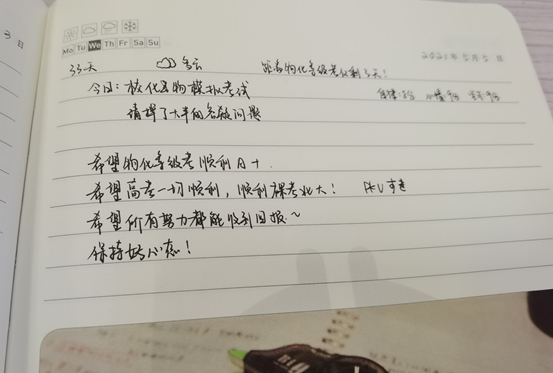 3日
Mo Tu We Th Fr Sa Su
2021年5月5日
33天 多云 距离物化等级考仅剩3天!
今日: 校化生物模拟考试
请理了大半的答疑问题
希望物化等级考顺利A+.
希望高考一切顺利, 顺利裸考北大! PKU
希望所有努力都能收到回报~
保持好心态!